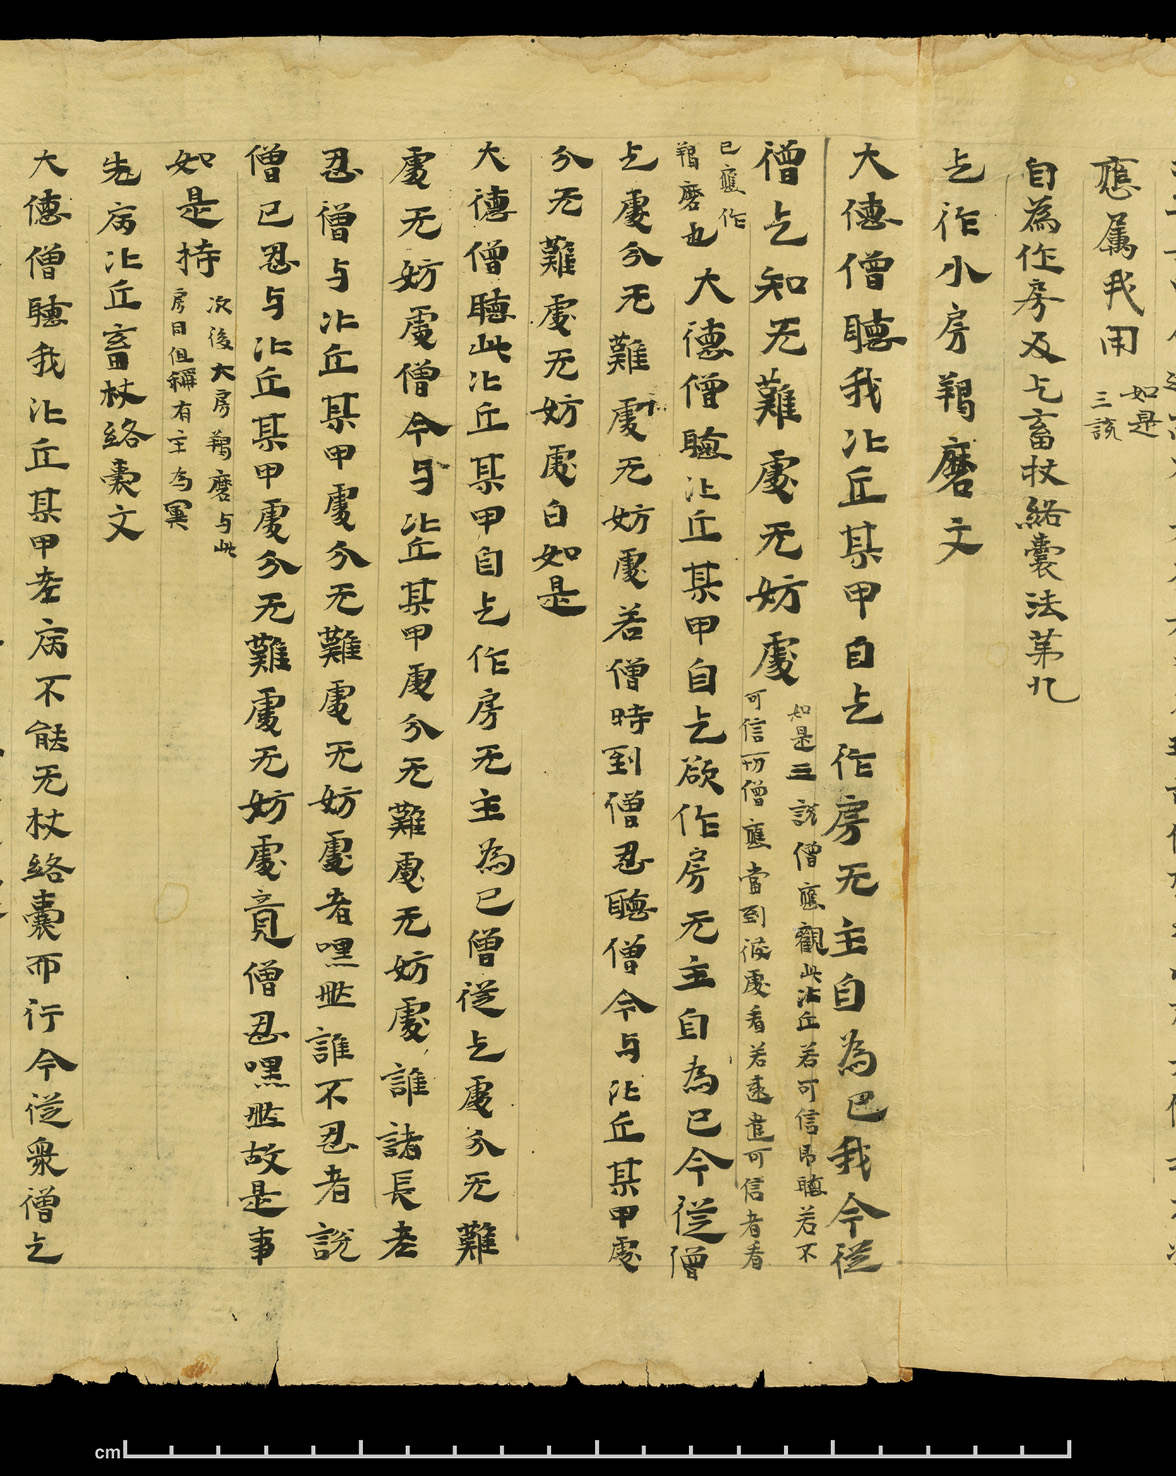 應属我用 如是三說
自為作房及乞畜杖絡囊法苐九
乞作小房羯磨文
大德僧聽我比丘某甲自乞作房无主自為已我今從
僧乞知无難處无妨處 如是三說僧應觀此比丘若可信即聽若不
可信一切僧應當到彼處看若遣可信者看
已應作羯磨也 大德僧聽比丘某甲自乞欲作房无主自為已今從僧
乞處分无難處无妨處若僧時到僧忍聽僧今与比丘某甲處
分无難處无妨處白如是
大德僧聽此比丘某甲自乞作房无主為已僧從乞處分无難
處无妨處僧今与比丘某甲處分无難處无妨處誰諸長老
忍僧与比丘某甲處分无難處无妨處者嘿然誰不忍者說
僧已忍与比丘某甲處分无難處无妨處竟僧忍嘿然故是事
如是持 次後大房羯磨与此房同但稱有主為異
先病比丘畜杖絡囊文
大德僧聽我比丘某甲老病不能无杖絡囊而行今從衆僧乞